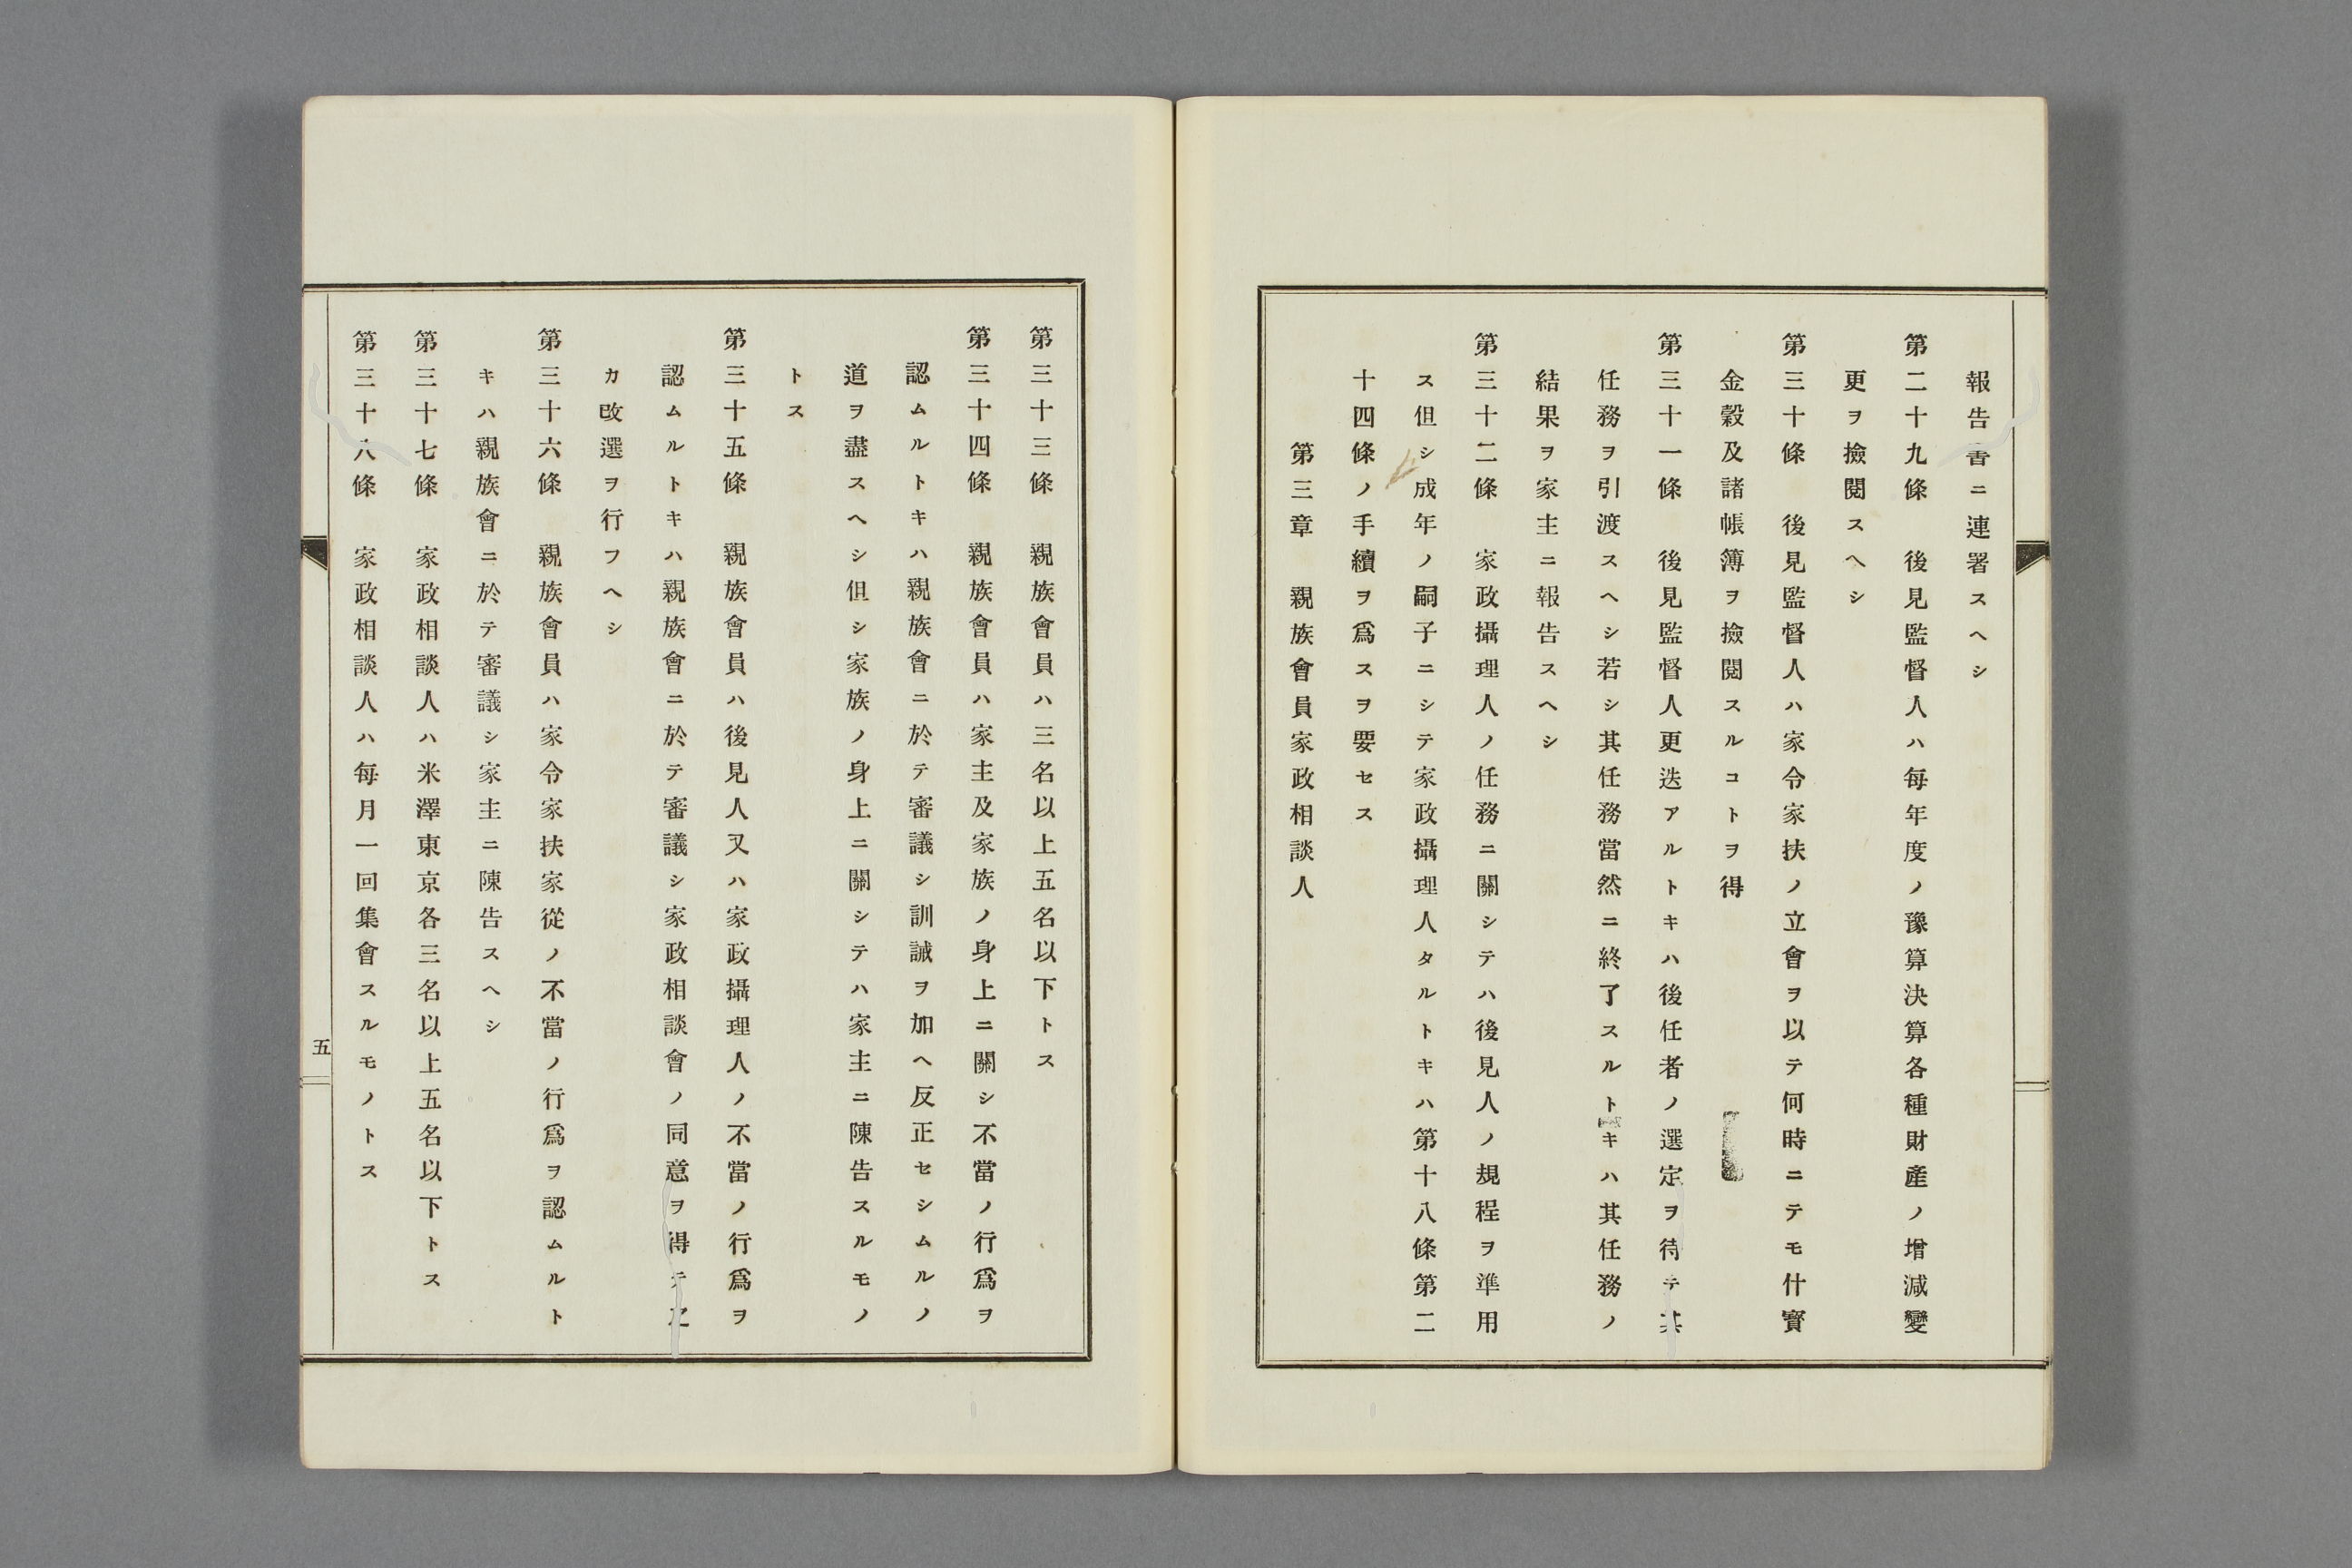 報告書ニ連署スヘシ
第二十九條　後見監督人ハ每年度ノ豫算決算各種財產ノ增減變
更ヲ撿閱スヘシ
第三十條　後見監督人ハ家令家扶ノ立會ヲ以テ何時ニテモ什寳
金穀及諸帳簿ヲ撿閱スルコトヲ得
第三十一條　後見監督人更迭アルトキハ後任者ノ選定ヲ待テ其
任務ヲ引渡スヘシ若シ其任務當然ニ終了スルトキハ其任務ノ
結果ヲ家主ニ報告スヘシ
第三十二條　家政攝理人ノ任務ニ關シテハ後見人ノ規程ヲ準用
ス但シ成年ノ嗣子ニシテ家政攝理人タルトキハ第十八條第二
十四條ノ手續ヲ爲スヲ要セス
第三章　親族會員家政相談人
第三十三條　親族會員ハ三名以上五名以下トス
第三十四條　親族會員ハ家主及家族ノ身上ニ關シ不當ノ行爲ヲ
認ムルトキハ親族會ニ於テ審議シ訓誡ヲ加ヘ反正セシムルノ
道ヲ盡スヘシ但シ家族ノ身上ニ關シテハ家主ニ陳告スルモノ
トス
第三十五條　親族會員ハ後見人又ハ家政攝理人ノ不當ノ行爲ヲ
認ムルトキハ親族會ニ於テ審議シ家政相談會ノ同意ヲ得テ之
カ改選ヲ行フヘシ
第三十六條　親族會員ハ家令家扶家從ノ不當ノ行爲ヲ認ムルト
キハ親族會ニ於テ審議シ家主ニ陳告スヘシ
第三十七條　家政相談人ハ米澤東京各三名以上五名以下トス
第三十八條　家政相談人ハ每月一回集會スルモノトス
五